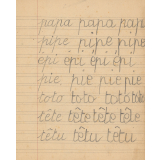 papa papa papa
pipe pipe pipe
épi épi épi épi
pie pie pie pie
toto toto toto
tête tête tête tête
têtu têtu têtu